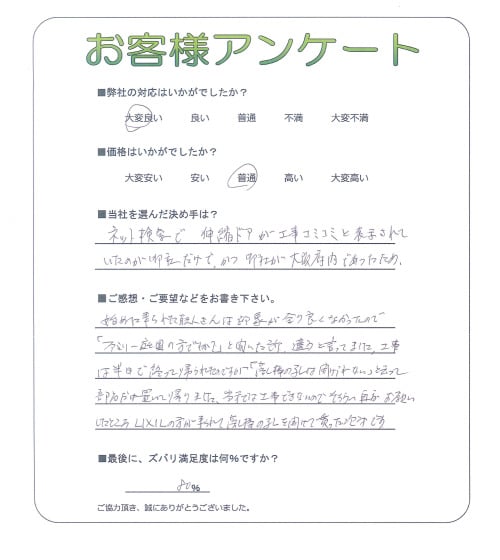 お客様アンケート
■弊社の対応はいかがでしたか？
大変良い 良い 普通 不満 大変不満
■価格はいかがでしたか？
大変安い 安い 普通 高い 大変高い
■当社を選んだ決め手は？
ネット検索で 伸縮ドアが工事コミコミと表示されて
いたのが御社だけで、かつ 御社が大阪府内であったため。
■ご感想・ご要望などをお書き下さい。
始めに来られた職人さんは印象が余り良くなかったので
「ファミリー庭園の方ですか?」と聞いた所、違うと言ってました、工事
は半日で終って帰られたのですが「落し棒の孔は開けれない」と云って
部品だけ置いて帰りました、
いたところLIXILの方が来られて落し棒の孔を開けて貰った次第です
■最後に、ズバリ満足度は何％ですか？
80％
ご協力頂き、誠にありがとうございました。